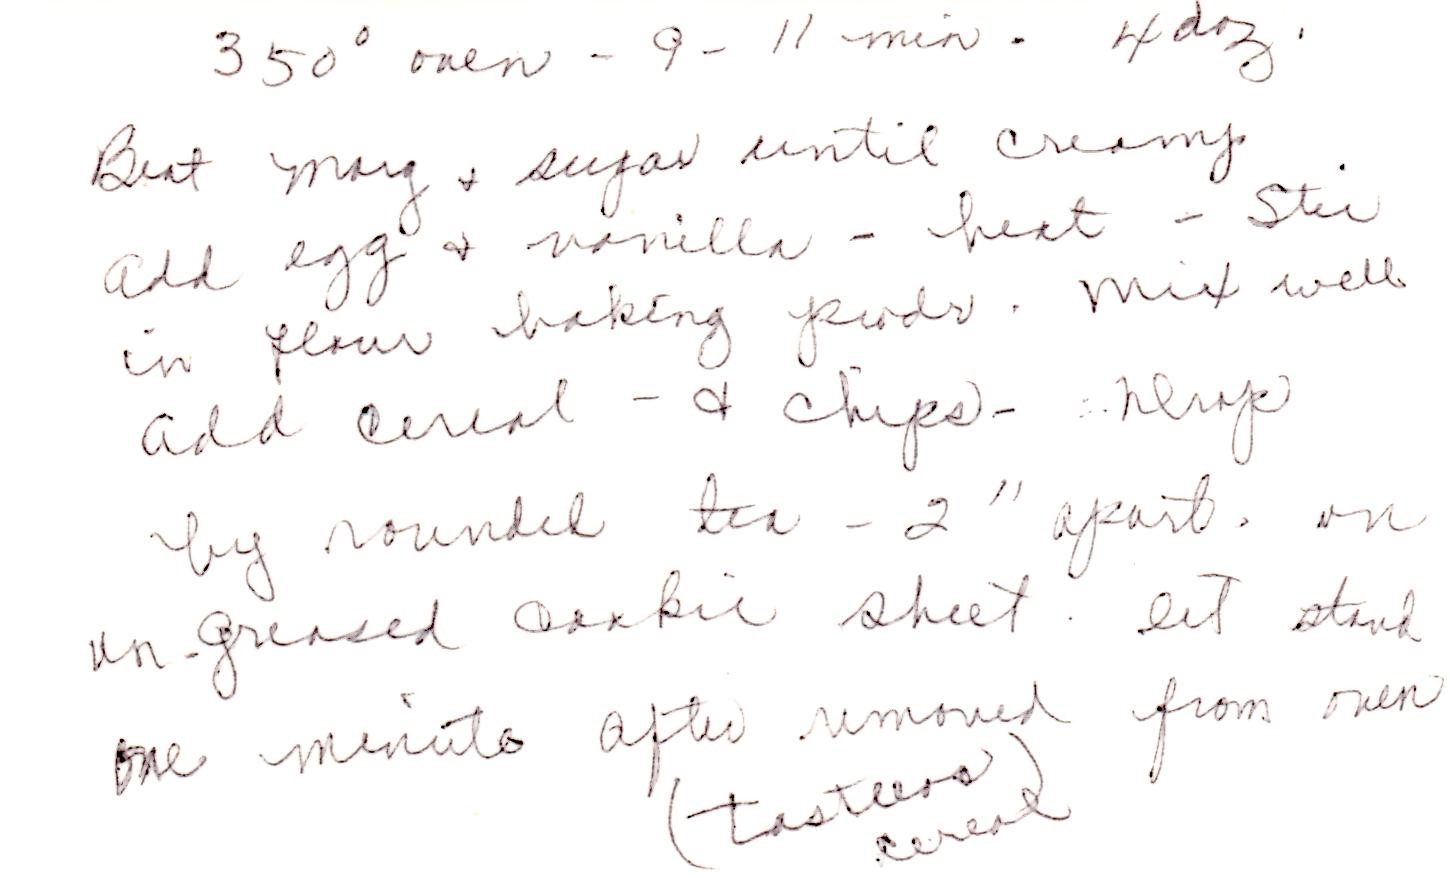 350° oven - 9 - 11 min. 4 doz.
Beat marg & sugar until creamy.
add egg & vanilla - beat - Stir
in flour baking powdr. Mix well
add cereal - & chips - Drop
by rounded tea - 2" apart. on
un-greased cookie sheet. let stand
one minute after removed from oven
(tasteeos)
cereal